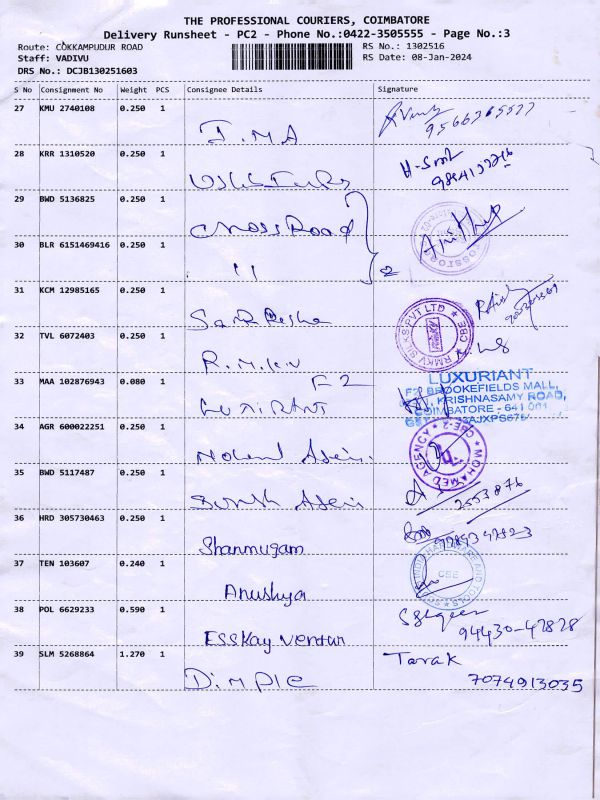 THE PROFESSIONAL COURIERS, COIMBATORE
Delivery Runsheet - PC2 - Phone No.:0422-3505555 - Page No.:3
Route: COKKAMPUDUR ROAD
Staff: VADIVU
DRS No.: DCJB130251603
RS No.: 1302516
RS Date: 08-Jan-2024
S No Consignment No Weight PCS Consignee Details Signature
27 KMU 2740108 0.250 1
I.M.A
28 KRR 1310520 0.250 1
29 BWD 5136825 0.250 1
CrossRoad
30 BLR 6151469416 0.250 1
11 2
31 KCM 12985165 0.250 1
32 TVL 6072403 0.250 1
R.M.K.V
RMKV SILKS PVT LTD
CBE
33 MAA 102876943 0.080 1
F2
LUXIRANT
LUXURIANT
F2 BROOKEFIELDS MALL,
KRISHNASAMY ROAD,
COIMBATORE - 641 001
34 AGR 600022251 0.250 1
MOHAMED AGENCY
CBE-2
35 BWD 5117487 0.250 1
Suresh
2553876
36 HRD 305730463 0.250 1
Shanmugam
37 TEN 103607 0.240 1
Anushya
HARDWARE AND TOOLS
CBE
38 POL 6629233 0.590 1
ESSKay Ventur
94430-42828
39 SLM 5268864 1.270 1
Dimple
Tarak
7074913035